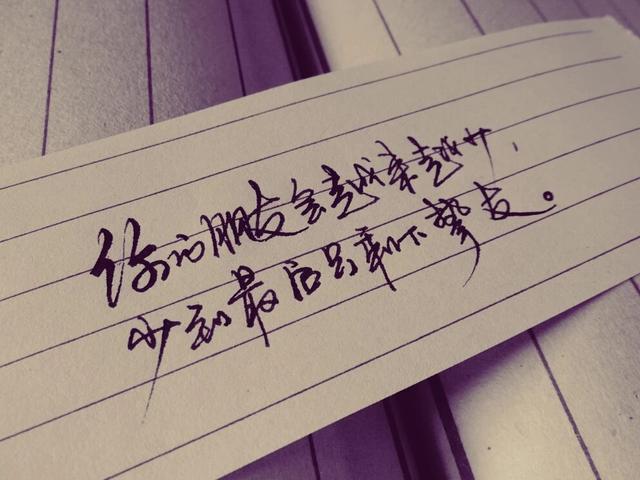 你的朋友会越来越少，
少到最后只剩下挚友。